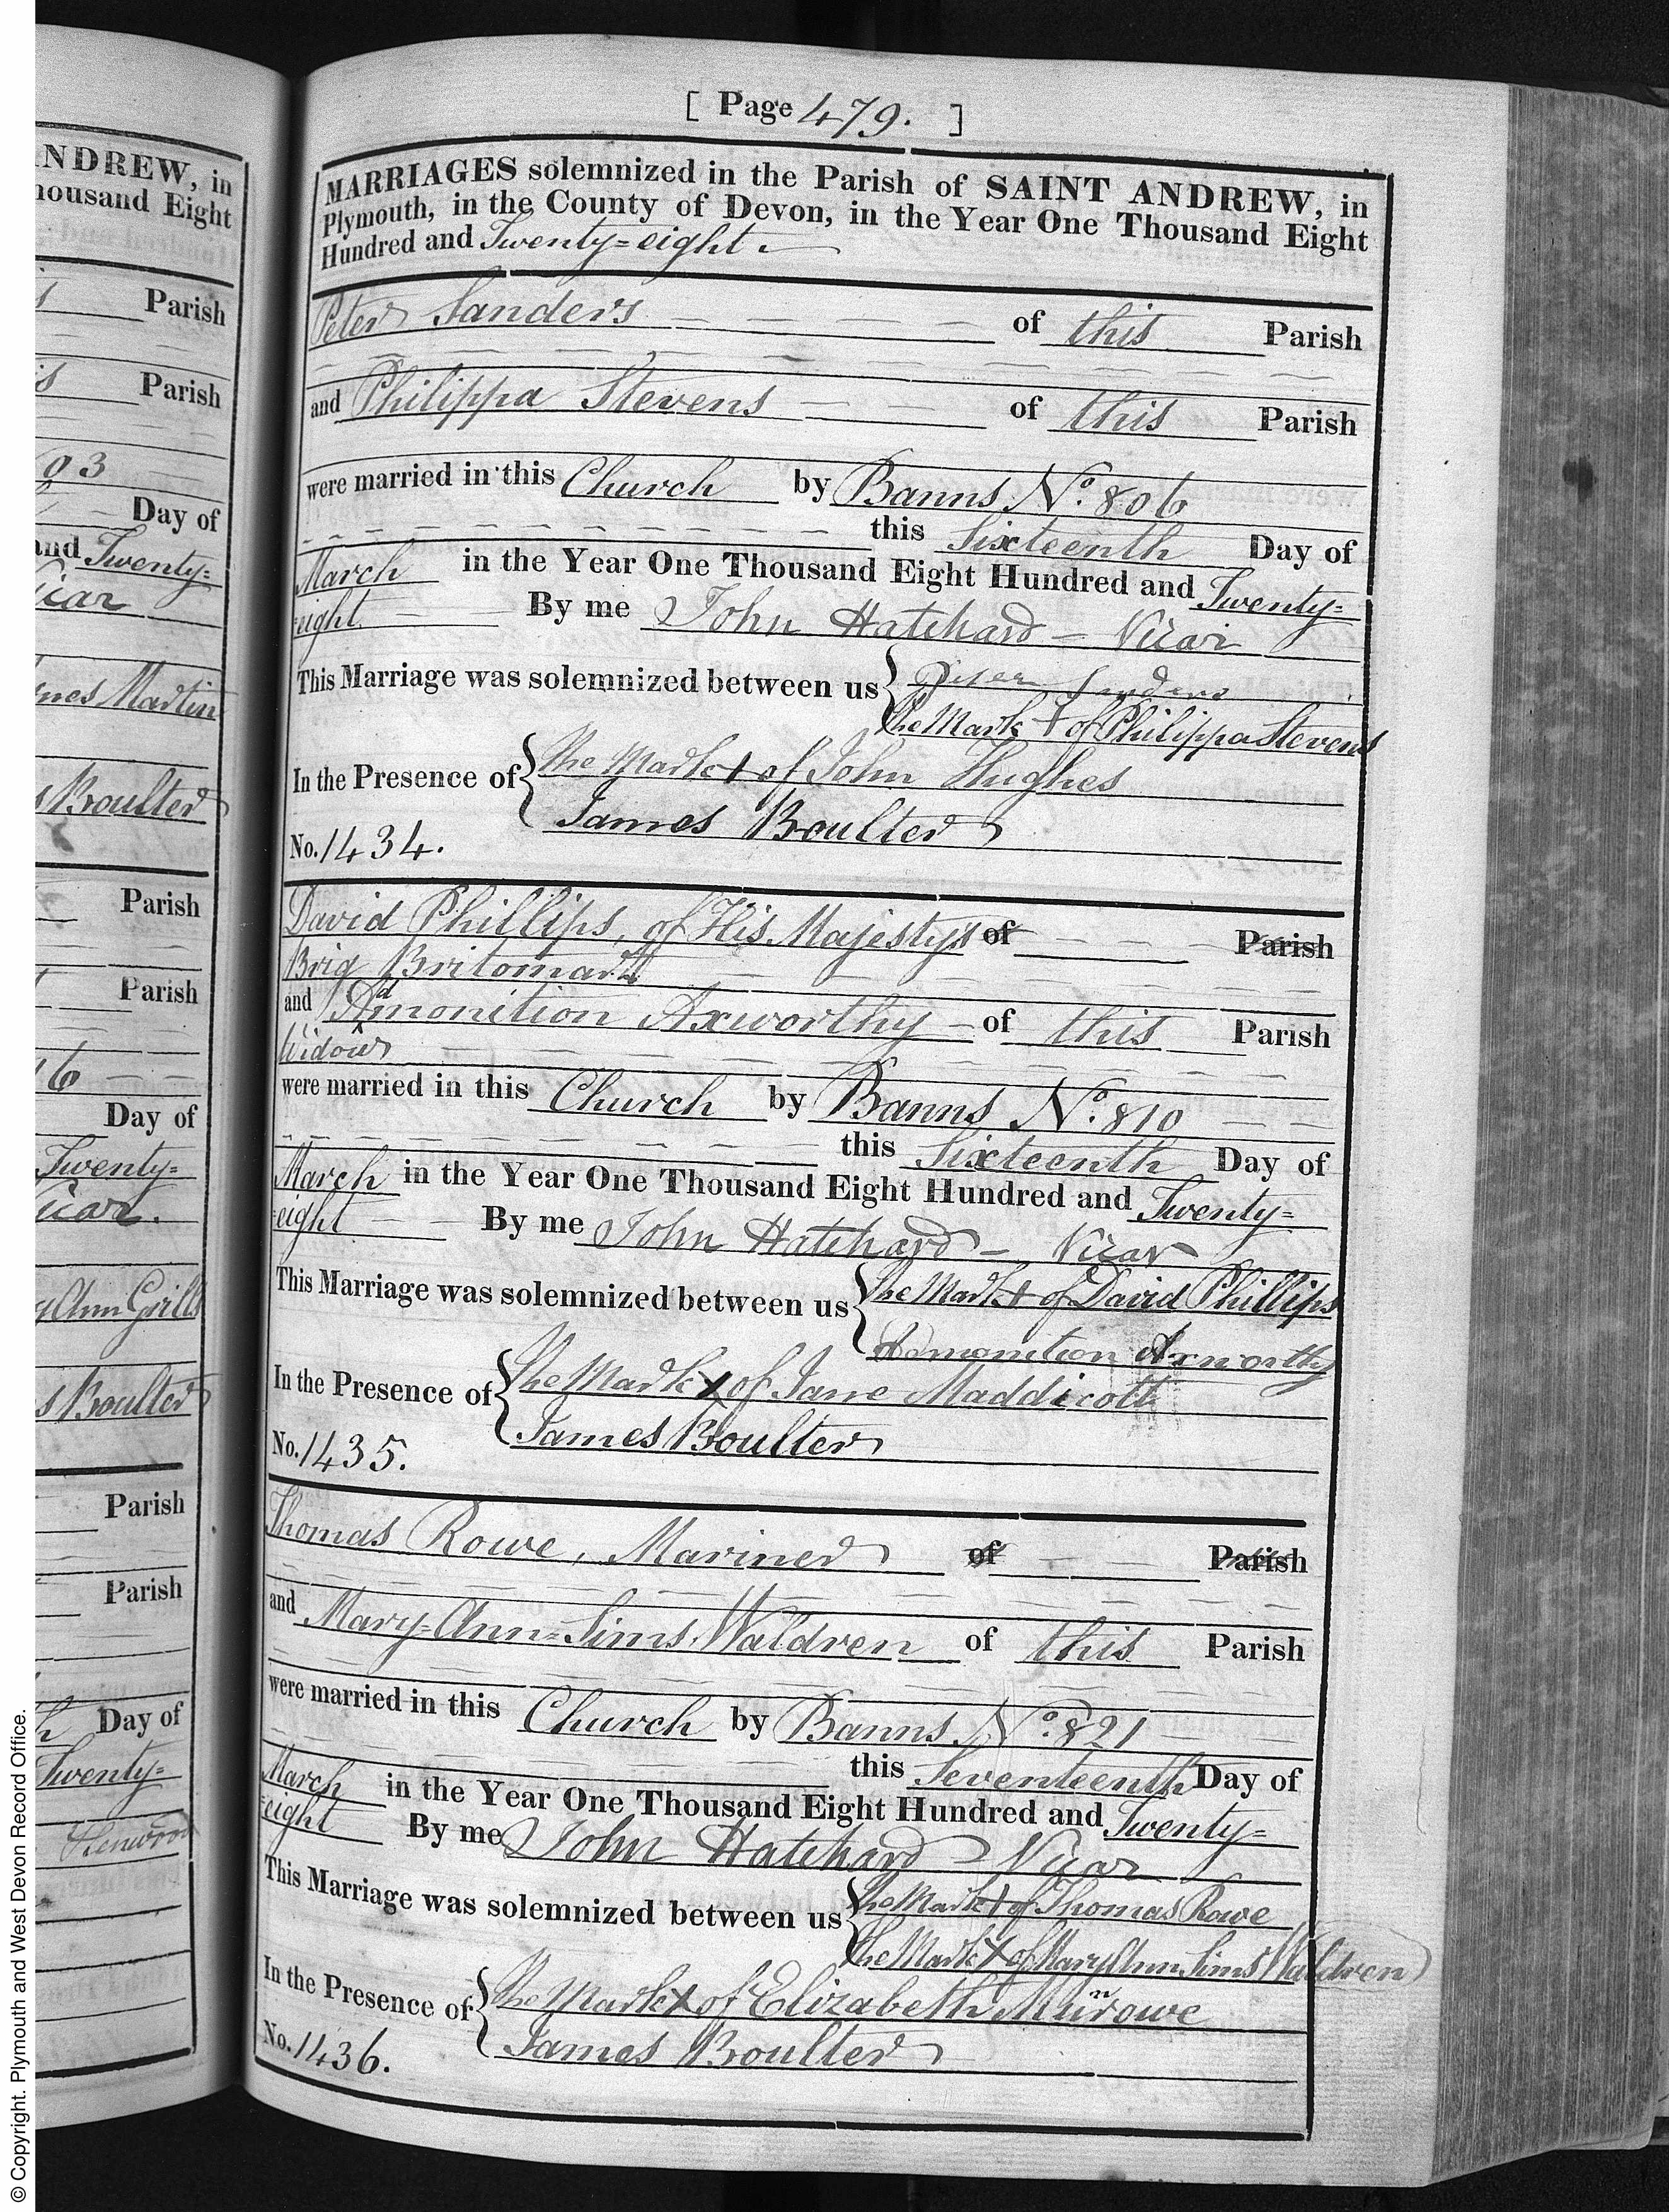 [ Page 479. ]
MARRIAGES solemnized in the Parish of SAINT ANDREW, in
Plymouth, in the County of Devon, in the Year One Thousand Eight
Hundred and Twenty=eight.
Peter Sanders of this Parish
and Philippa Stevens of this Parish
were married in this Church by Banns No. 806
this Sixteenth Day of
March in the Year One Thousand Eight Hundred and Twenty=
eight By me John Hatchard - Vicar
This Marriage was solemnized between us { Peter Sanders
The Mark + of Philippa Stevens
In the Presence of { The Mark + of John Hughes
James Boulter
No. 1434.
David Phillips, of His Majestys of Parish
Brig Britomart
and Admonition Axworthy - of this Parish
Widow
were married in this Church by Banns No. 810
this Sixteenth Day of
March in the Year One Thousand Eight Hundred and Twenty=
=eight By me John Hatchard - Vicar
This Marriage was solemnized between us { The Mark + of David Phillips
Admonition Axworthy
In the Presence of { The Mark X of Jane Maddicott
James Boulter
No. 1435.
Thomas Rowe, Mariner of Parish
and Mary=Ann=Sims Waldren of this Parish
were married in this Church by Banns No. 821
this Seventeenth Day of
March in the Year One Thousand Eight Hundred and Twenty=
=eight By me John Hatchard Vicar
This Marriage was solemnized between us { The Mark + of Thomas Rowe
The Mark X of Mary Ann Sims Waldren
In the Presence of { The Mark X of Elizabeth
James Boulter
No. 1436.
ANDREW, in
Thousand Eight
Parish
Parish
03
Day of
and Twenty=
Vicar
Martin
Boulter
Parish
Parish
16
Day of
Twenty=
Vicar.
Ann Grills
Boulter
Parish
Parish
Day of
Twenty=
Henwood
© Copyright. Plymouth and West Devon Record Office.